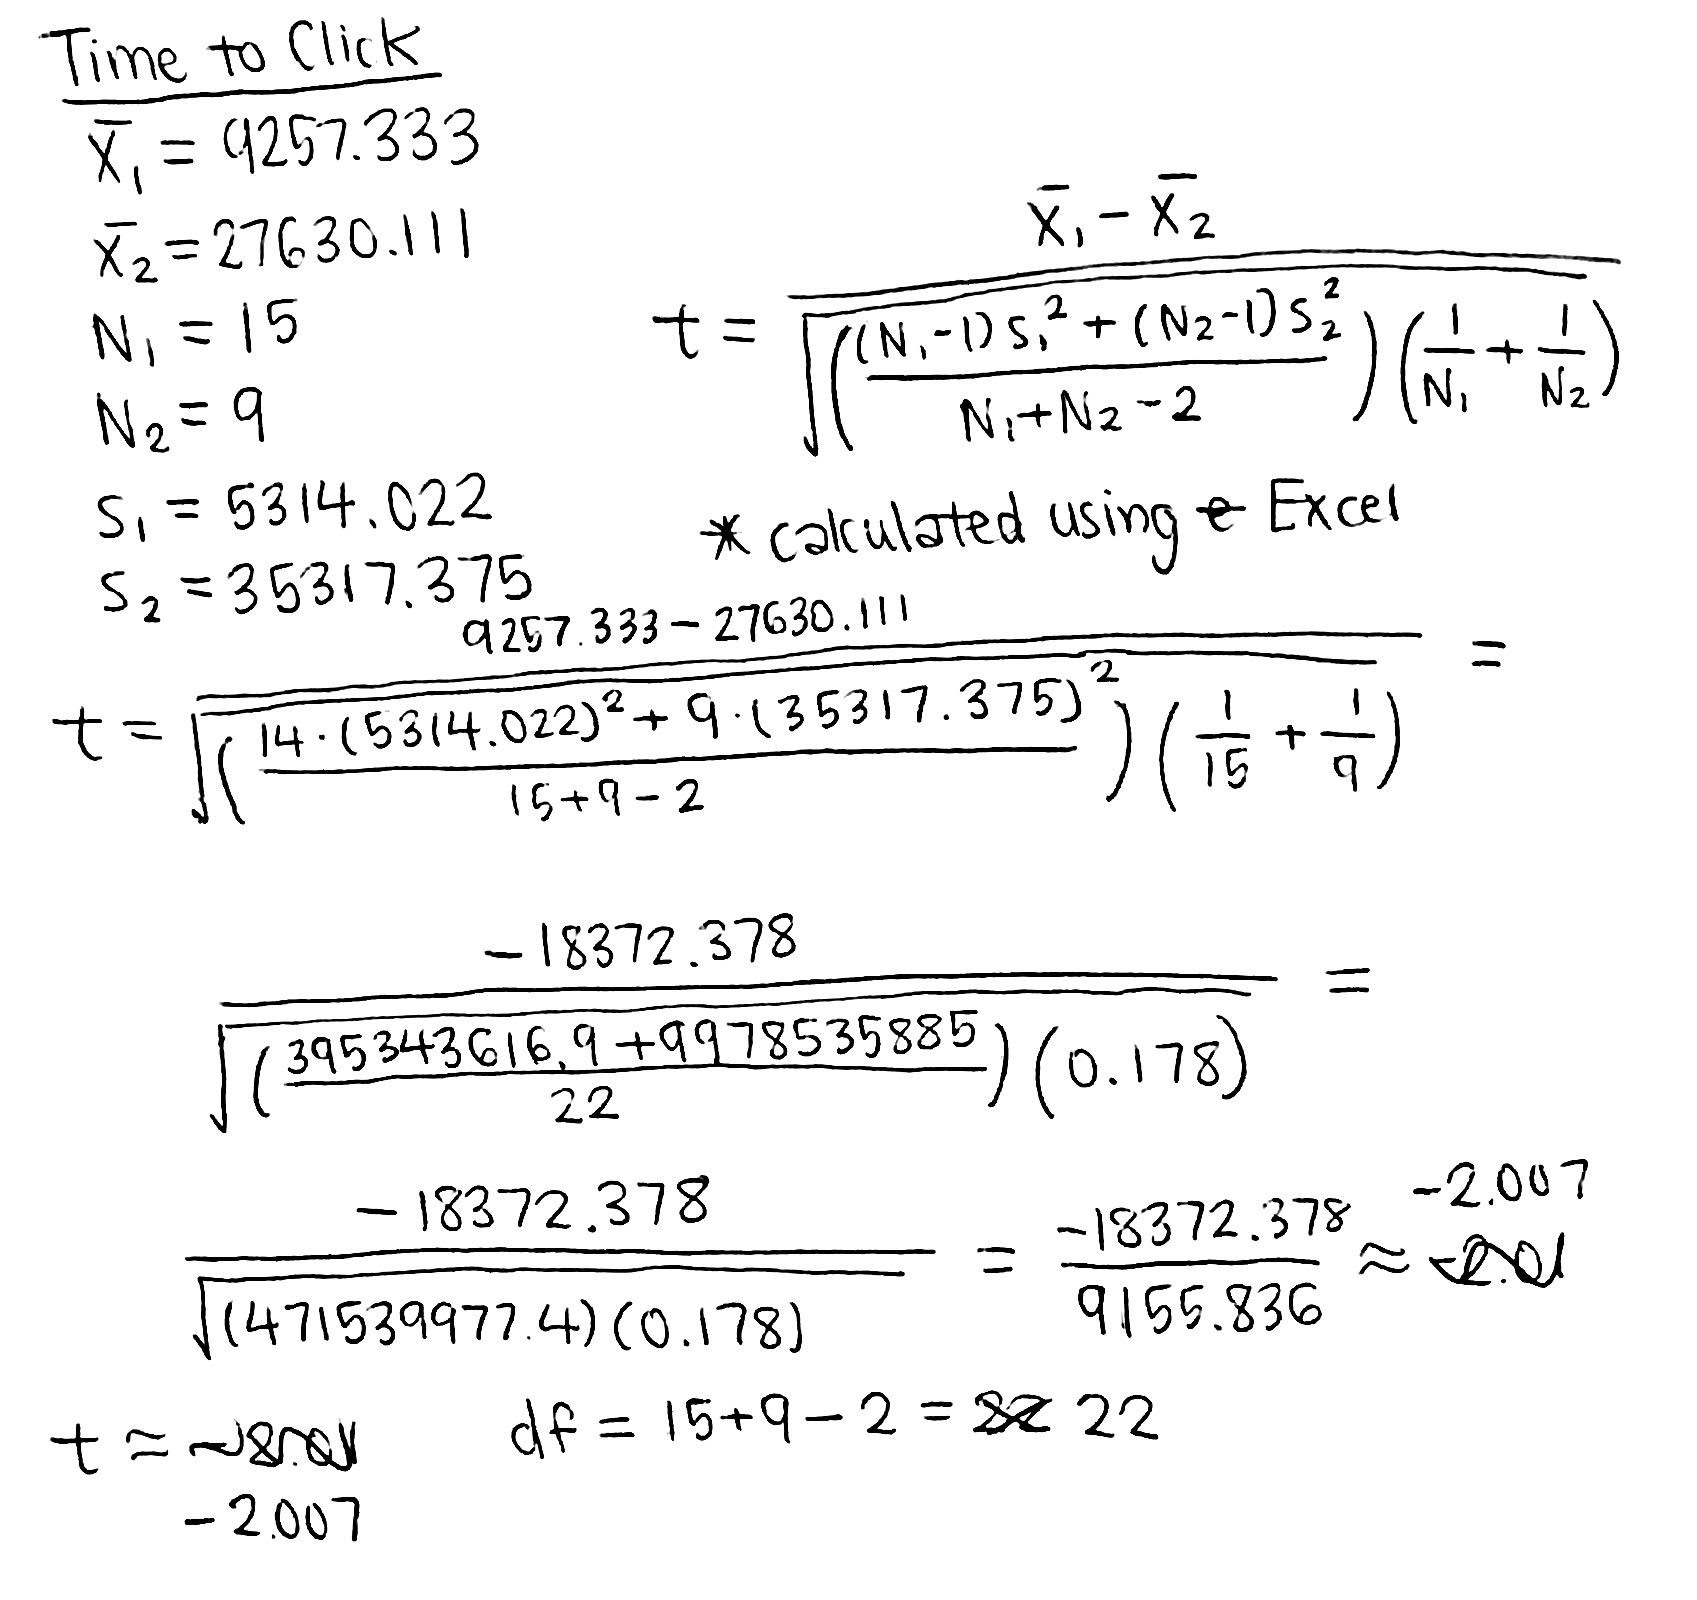 Time to Click
X̄₁ = 9257.333
X̄₂ = 27630.111
N₁ = 15
N₂ = 9
S₁ = 5314.022
S₂ = 35317.375
t = (X̄₁ - X̄₂) / √(((N₁-1)S₁² + (N₂-1)S₂²) / (N₁+N₂-2))(1/N₁ + 1/N₂)
* calculated using e Excel
t = (9257.333 - 27630.111) / √((14·(5314.022)² + 9·(35317.375)²) / (15+9-2))(1/15 + 1/9) =
-18372.378 / √((395343616.9 + 9978535885) / 22)(0.178) =
-18372.378 / √(471539977.4)(0.178) = -18372.378 / 9155.836 ≈ -2.01 -2.007
t ≈ -8.01 df = 15+9-2 = 32 22
-2.007